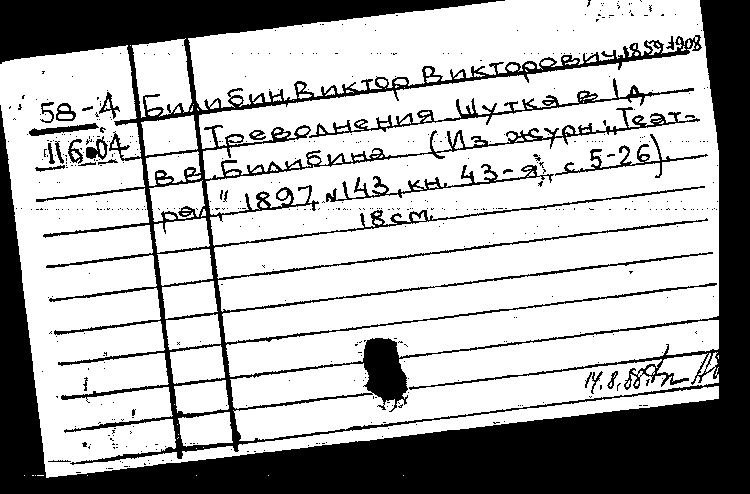 58-4 Билибин, Виктор Викторович, 1859-1908
116.04 Треволнения Шутка в 1 д.
В.В. Билибина. (Из журн. „Теат-
рал,“ 1897, №143, кн. 43-я, с. 5-26).
18 см.
14.8.88